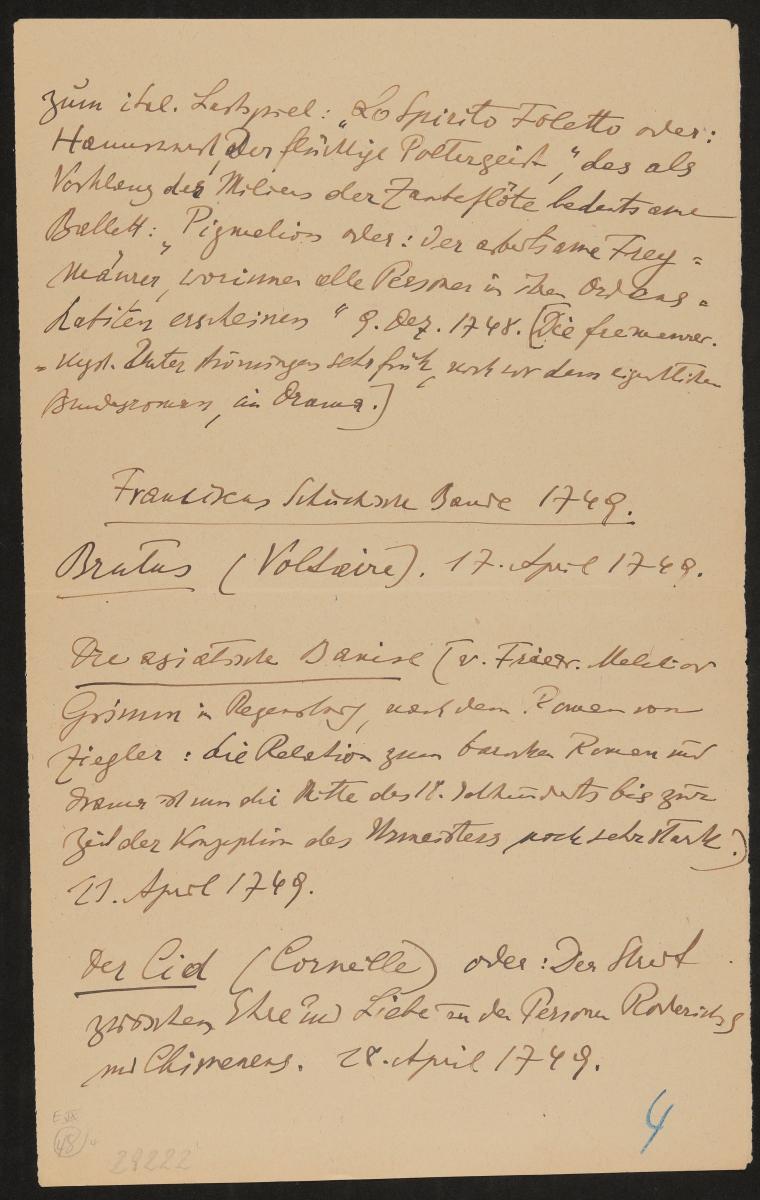 zum ital. Lustspiel: „Lo Spirito Foletto oder:
Der flüchtige Poltergeist," das als
Vorklang des Milieus der Zauberflöte bedeutsame
Ballett: „Pigmelion oder: der arbeitsame Frey=
Mäurer, worinnen alle Personen in ihren Ordens=
habiten erscheinen" 9. Dez. 1748. (Die freimaurer.
Unterströmungen sehr früh, noch vor dem eigentlichen
Bundesroman, im Drama.)
Franciscus Schuchsche Bande 1749.
Brutus (Voltaire). 17. April 1749.
Die asiatische Banise (v. Friedr. Melchior
Grimm in Regensburg, nach dem Roman von
Ziegler: die Relation zum barocken Roman und
Drama ist um die Mitte des 18. Jahrhunderts bis zur
Zeit der Konzeption des Urmeisters noch sehr stark.)
21. April 1749.
Der Cid (Corneille) oder: Der Streit
zwischen Ehre und Liebe in den Personen Roderichs
und Chimenens. 28. April 1749.
4
48
29222